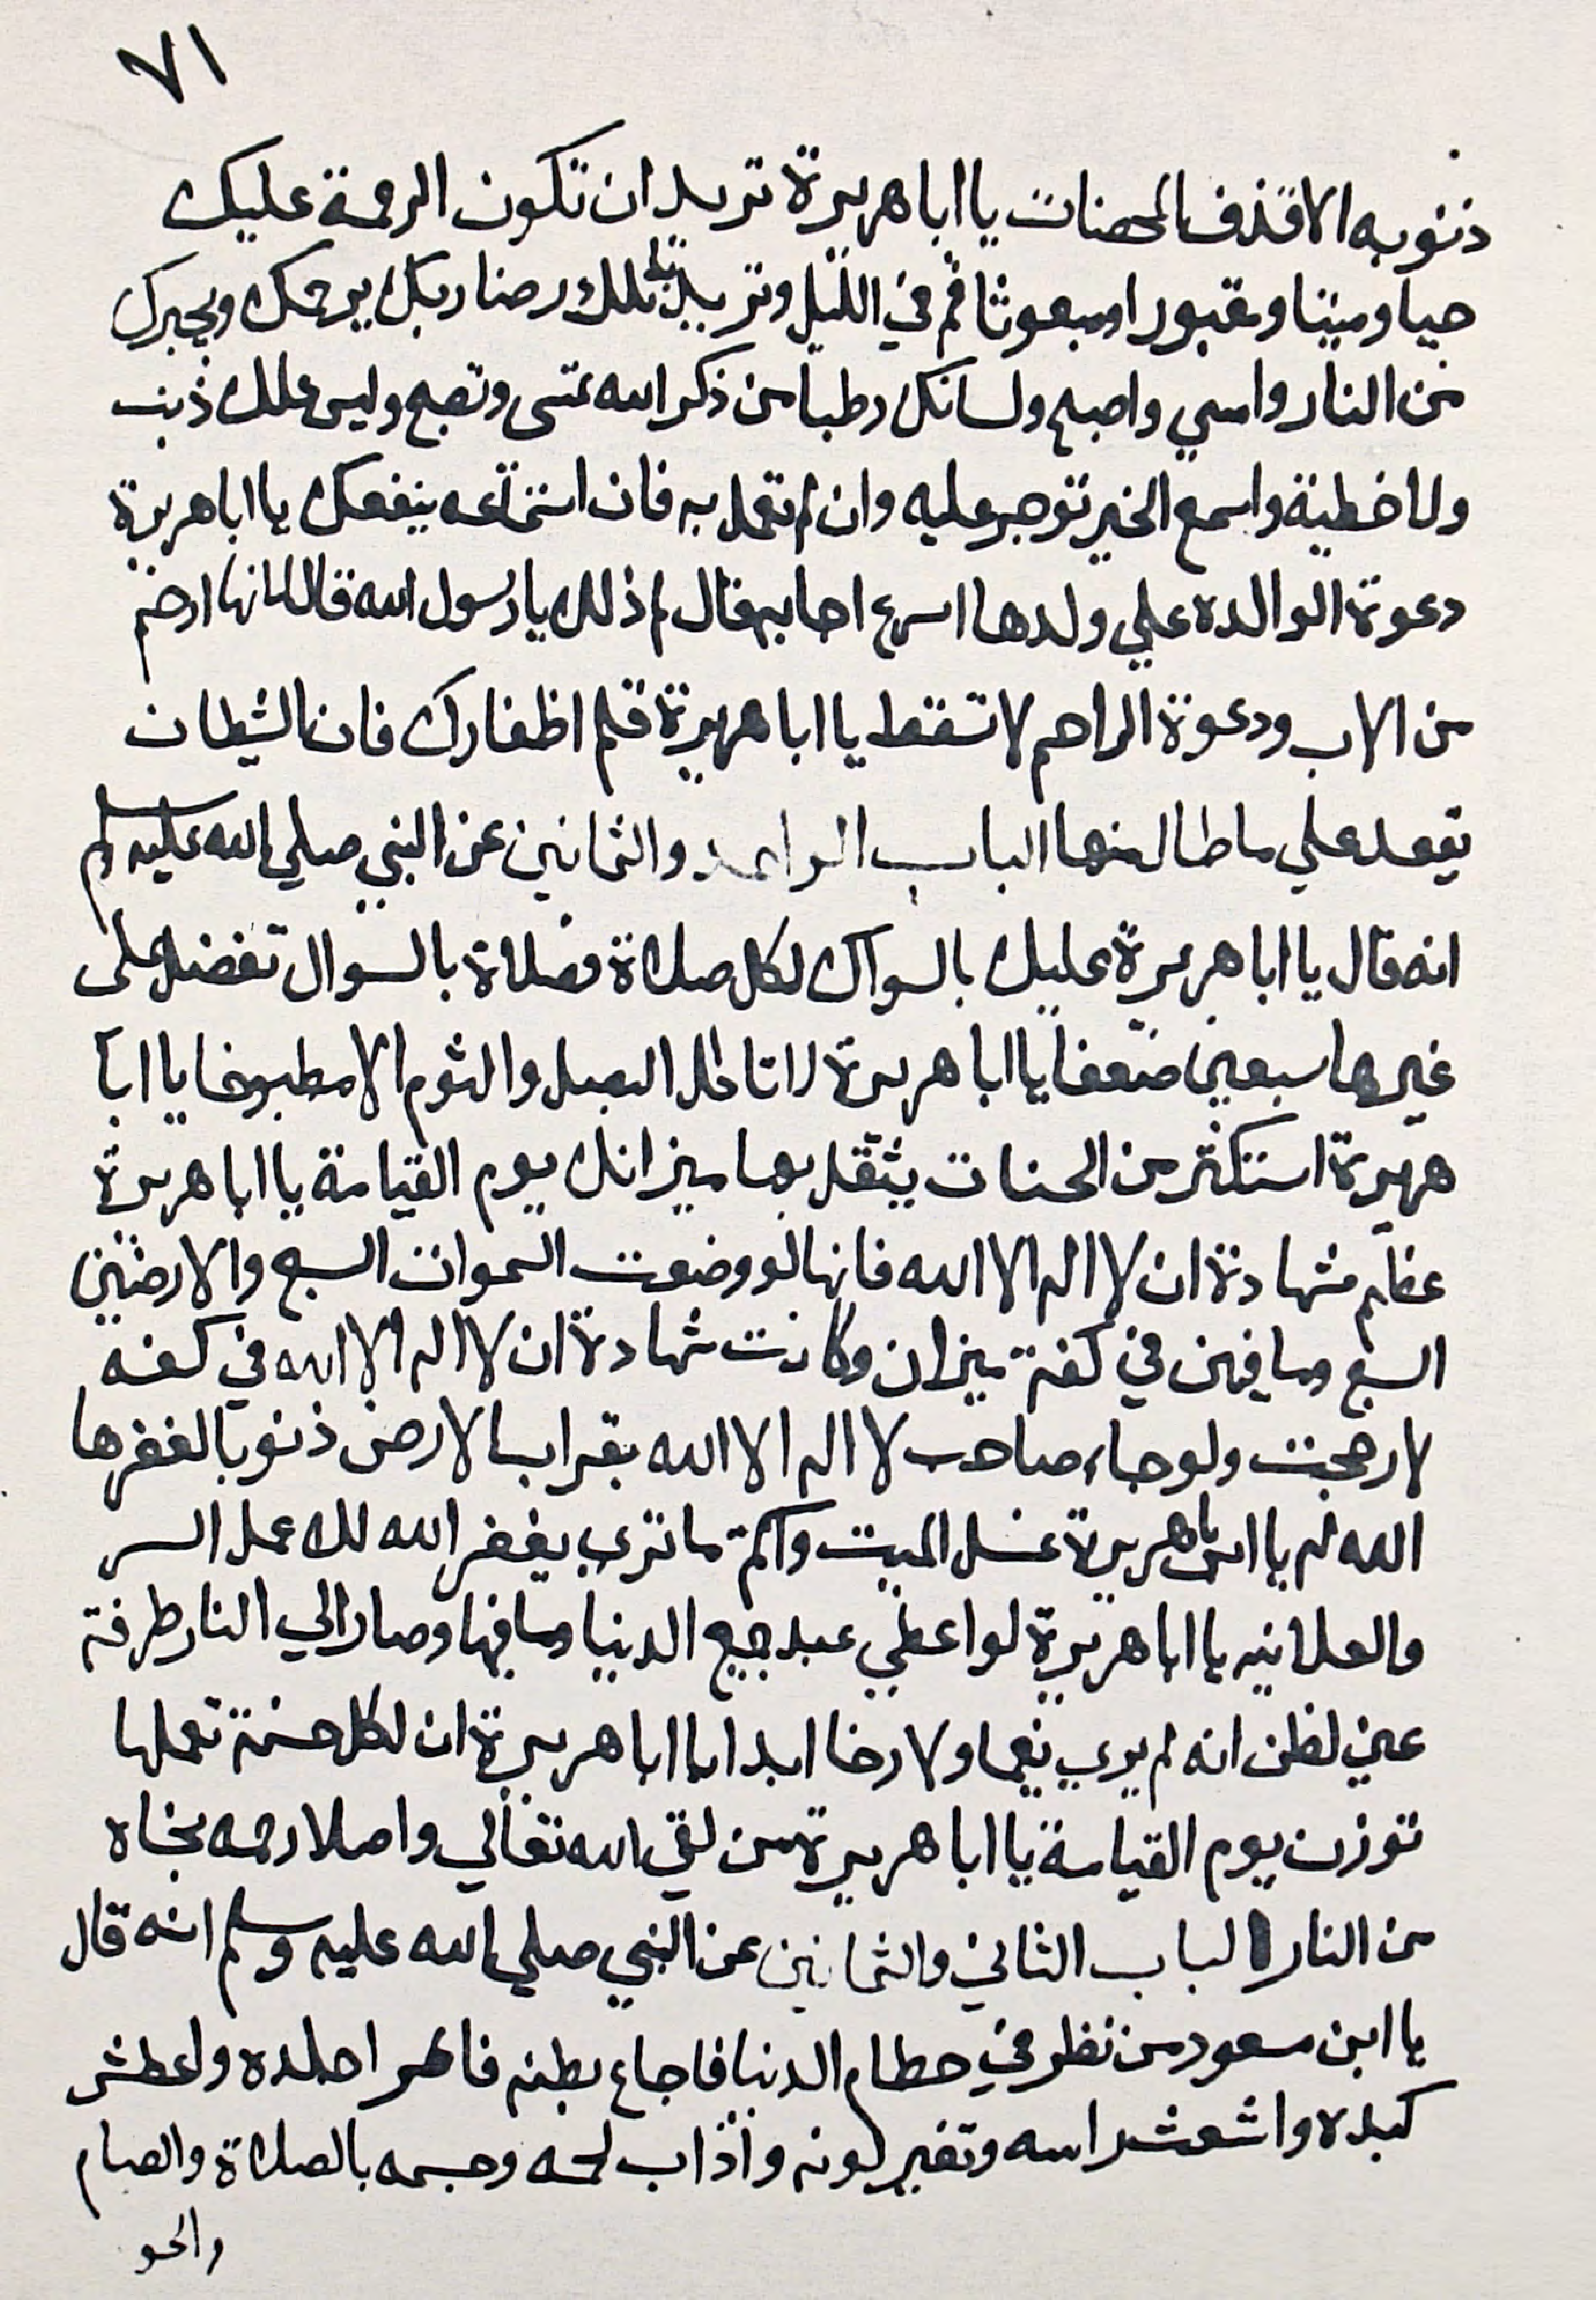 ٧١
ذنوبه الا قذف المحصنات يا ابا هريرة تريد ان تكون الرحمة عليك
حيا وميتا ومقبورا ومبعوثا قم في الليل وتريد بذلك رضا ربك يرحمك ويجيرك
من النار وامسي واصبح ولسانك رطبا من ذكر الله تمسى وتصبح وليس عليك ذنب
ولا خطية واسمع الخير توجر عليه وان لم تعمل به فان استماعه ينفعك يا ابا هريرة
دعوة الوالدة علي ولدها اسرع اجابه قال لم ذلك يا رسول الله قال لانها ارحم
من الاب ودعوة الراحم لا تسقط يا ابا هريرة قلم اظفارك فان الشيطان
يقعد علي ما طال منها الباب الواحد والثمانين عن النبي صلي الله عليه وسلم
انه قال يا ابا هريرة عليك بالسواك لكل صلاة فصلاة بالسوال تفضل على
غيرها سبعين ضعفا يا ابا هريرة لا تاكل البصل والثوم الا مطبوخا يا ابا
هريرة استكثر من الحسنات يثقل بها ميزانك يوم القيامة يا ابا هريرة
عظم شهادة ان لا اله الا الله فانها لو وضعت السموات السبع والارضين
السبع وما فيهن في كفة ميزان وكانت شهادة ان لا اله الا الله في كفه
لارجحت ولو جاء صاحب لا اله الا الله بقراب الارض ذنوبا لغفرها
الله له يا ابا هريرة غسل الميت واكتم ما تري يغفر الله لك عمل السر
والعلانيه يا ابا هريرة لو اعطي عبد جميع الدنيا وما فيها وصار الي النار طرفة
عين لظن انه لم يري نعيما ولا رخا ابدا يا ابا هريرة ان لكل حسنة تعملها
توزن يوم القيامة يا ابا هريرة من لقي الله تعالي واصلا رحمه نجاه
من النار الباب الثاني والثمانين عن النبي صلي الله عليه وسلم انه قال
يا ابن مسعود من نظر في حطام الدنيا فاجاع بطنه جلده واعطش
كبده واشعث راسه وتغير لونه واذاب لحمه وجسمه بالصلاة والصيام
والحو